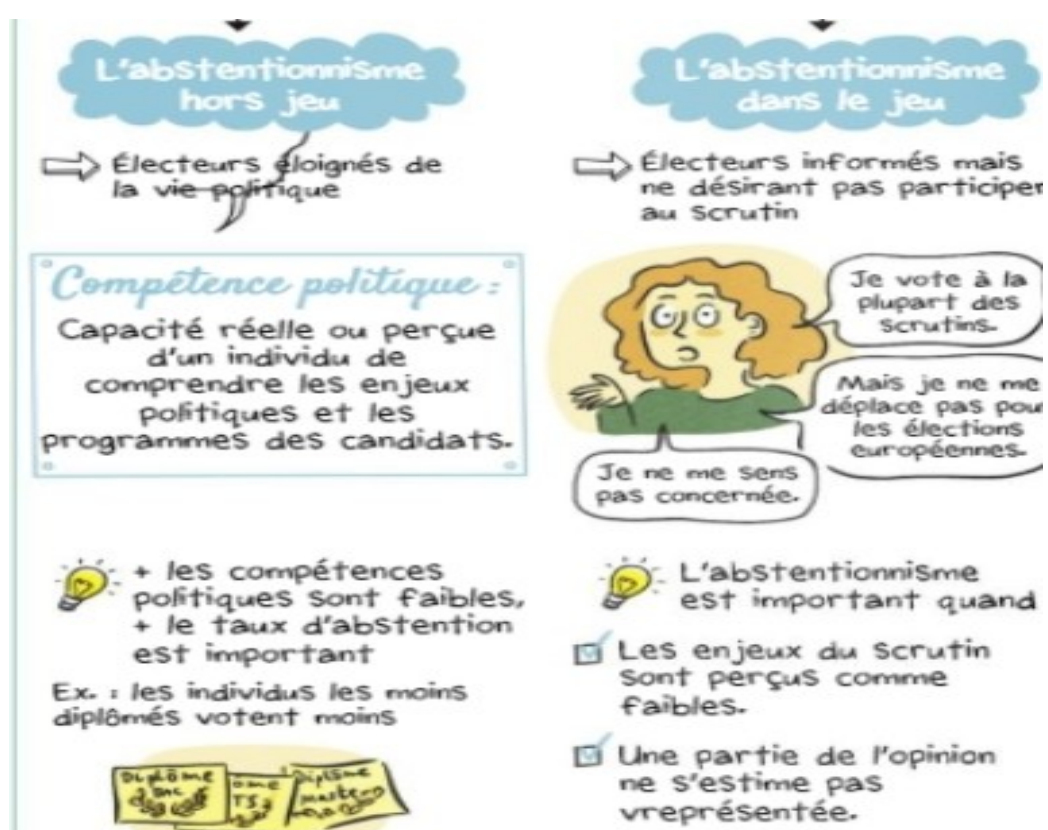 L'abstentionnisme
hors jeu
Électeurs éloignés de
la vie politique
Compétence politique :
Capacité réelle ou perçue
d'un individu de
comprendre les enjeux
politiques et les
programmes des candidats.
+ les compétences
politiques sont faibles,
+ le taux d'abstention
est important
Ex. : les individus les moins
diplômés votent moins
Diplôme
Bac
ome
TS
Diplôme
Master
L'abstentionnisme
dans le jeu
Électeurs informés mais
ne désirant pas participer
au scrutin
Je vote à la
plupart des
scrutins.
Mais je ne me
déplace pas pour
les élections
européennes.
Je ne me sens
pas concernée.
L'abstentionnisme
est important quand
Les enjeux du scrutin
sont perçus comme
faibles.
Une partie de l'opinion
ne s'estime pas
vreprésentée.